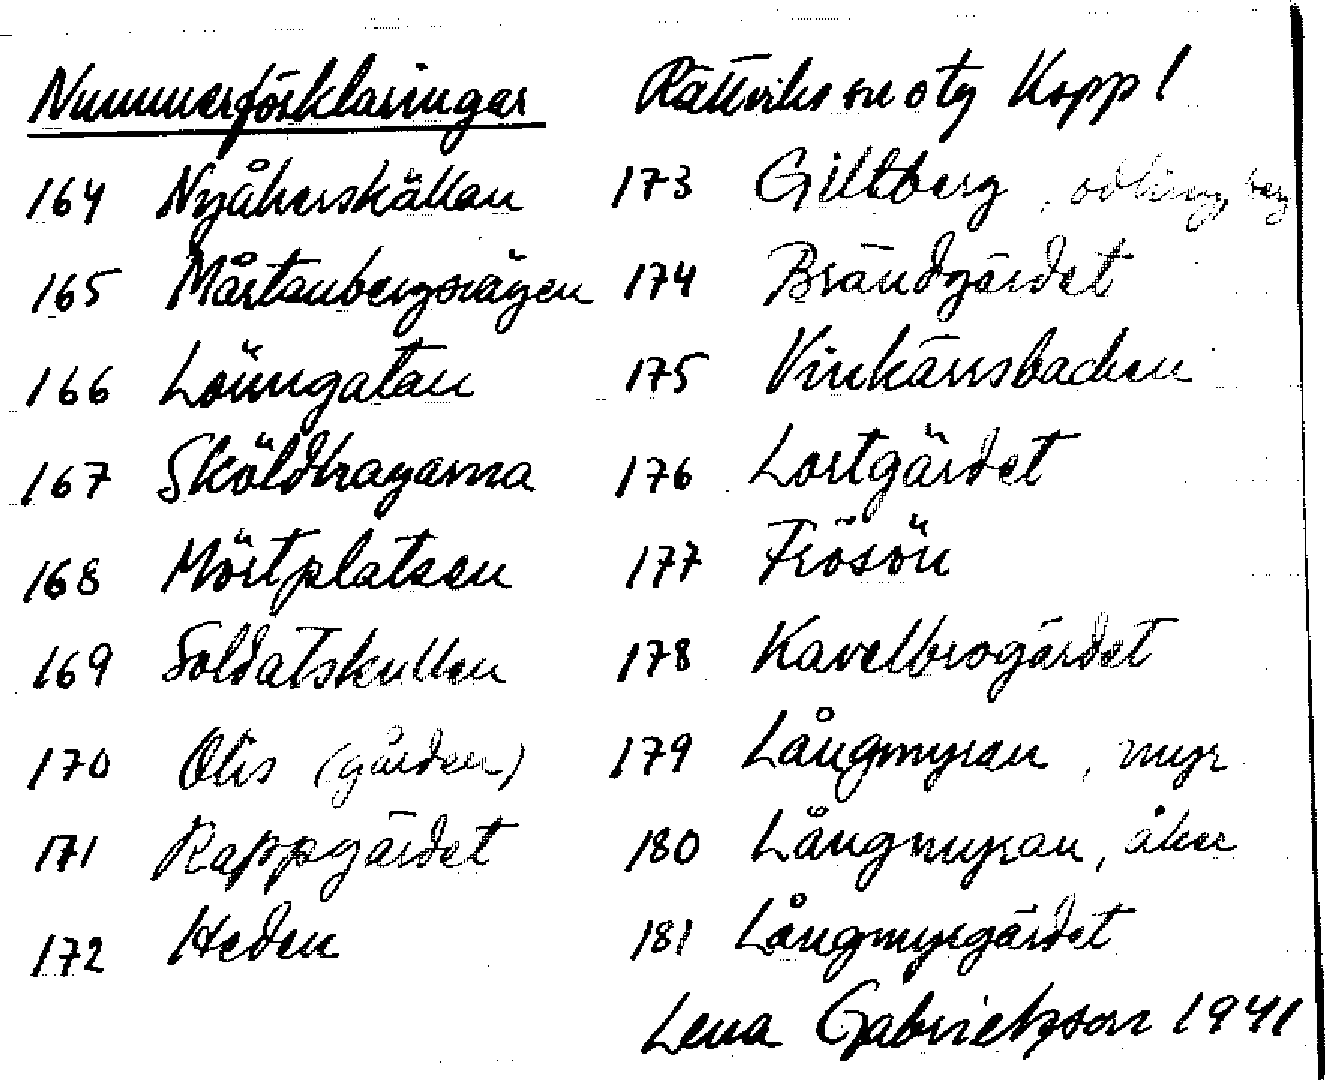 Nummerförklaringar
164 Nyåkerskällan
165 Mårtanbergsvägen
166 Lönngatan
167 Sköldhagarna
168 Mörtplatsen
169 Soldatskullen
170 Olis (gården)
171 Rappgärdet
172 Heden
Rättviks Kopp!
173 Gillberg, odling, berg
174 Brändgärdet
175 Vinkärrsbacken
176 Lortgärdet
177 Frösön
178 Kavelbrogärdet
179 Långmyran, myr
180 Långmyran, åker
181 Långmyrgärdet
Lena Gabrielsson 1941